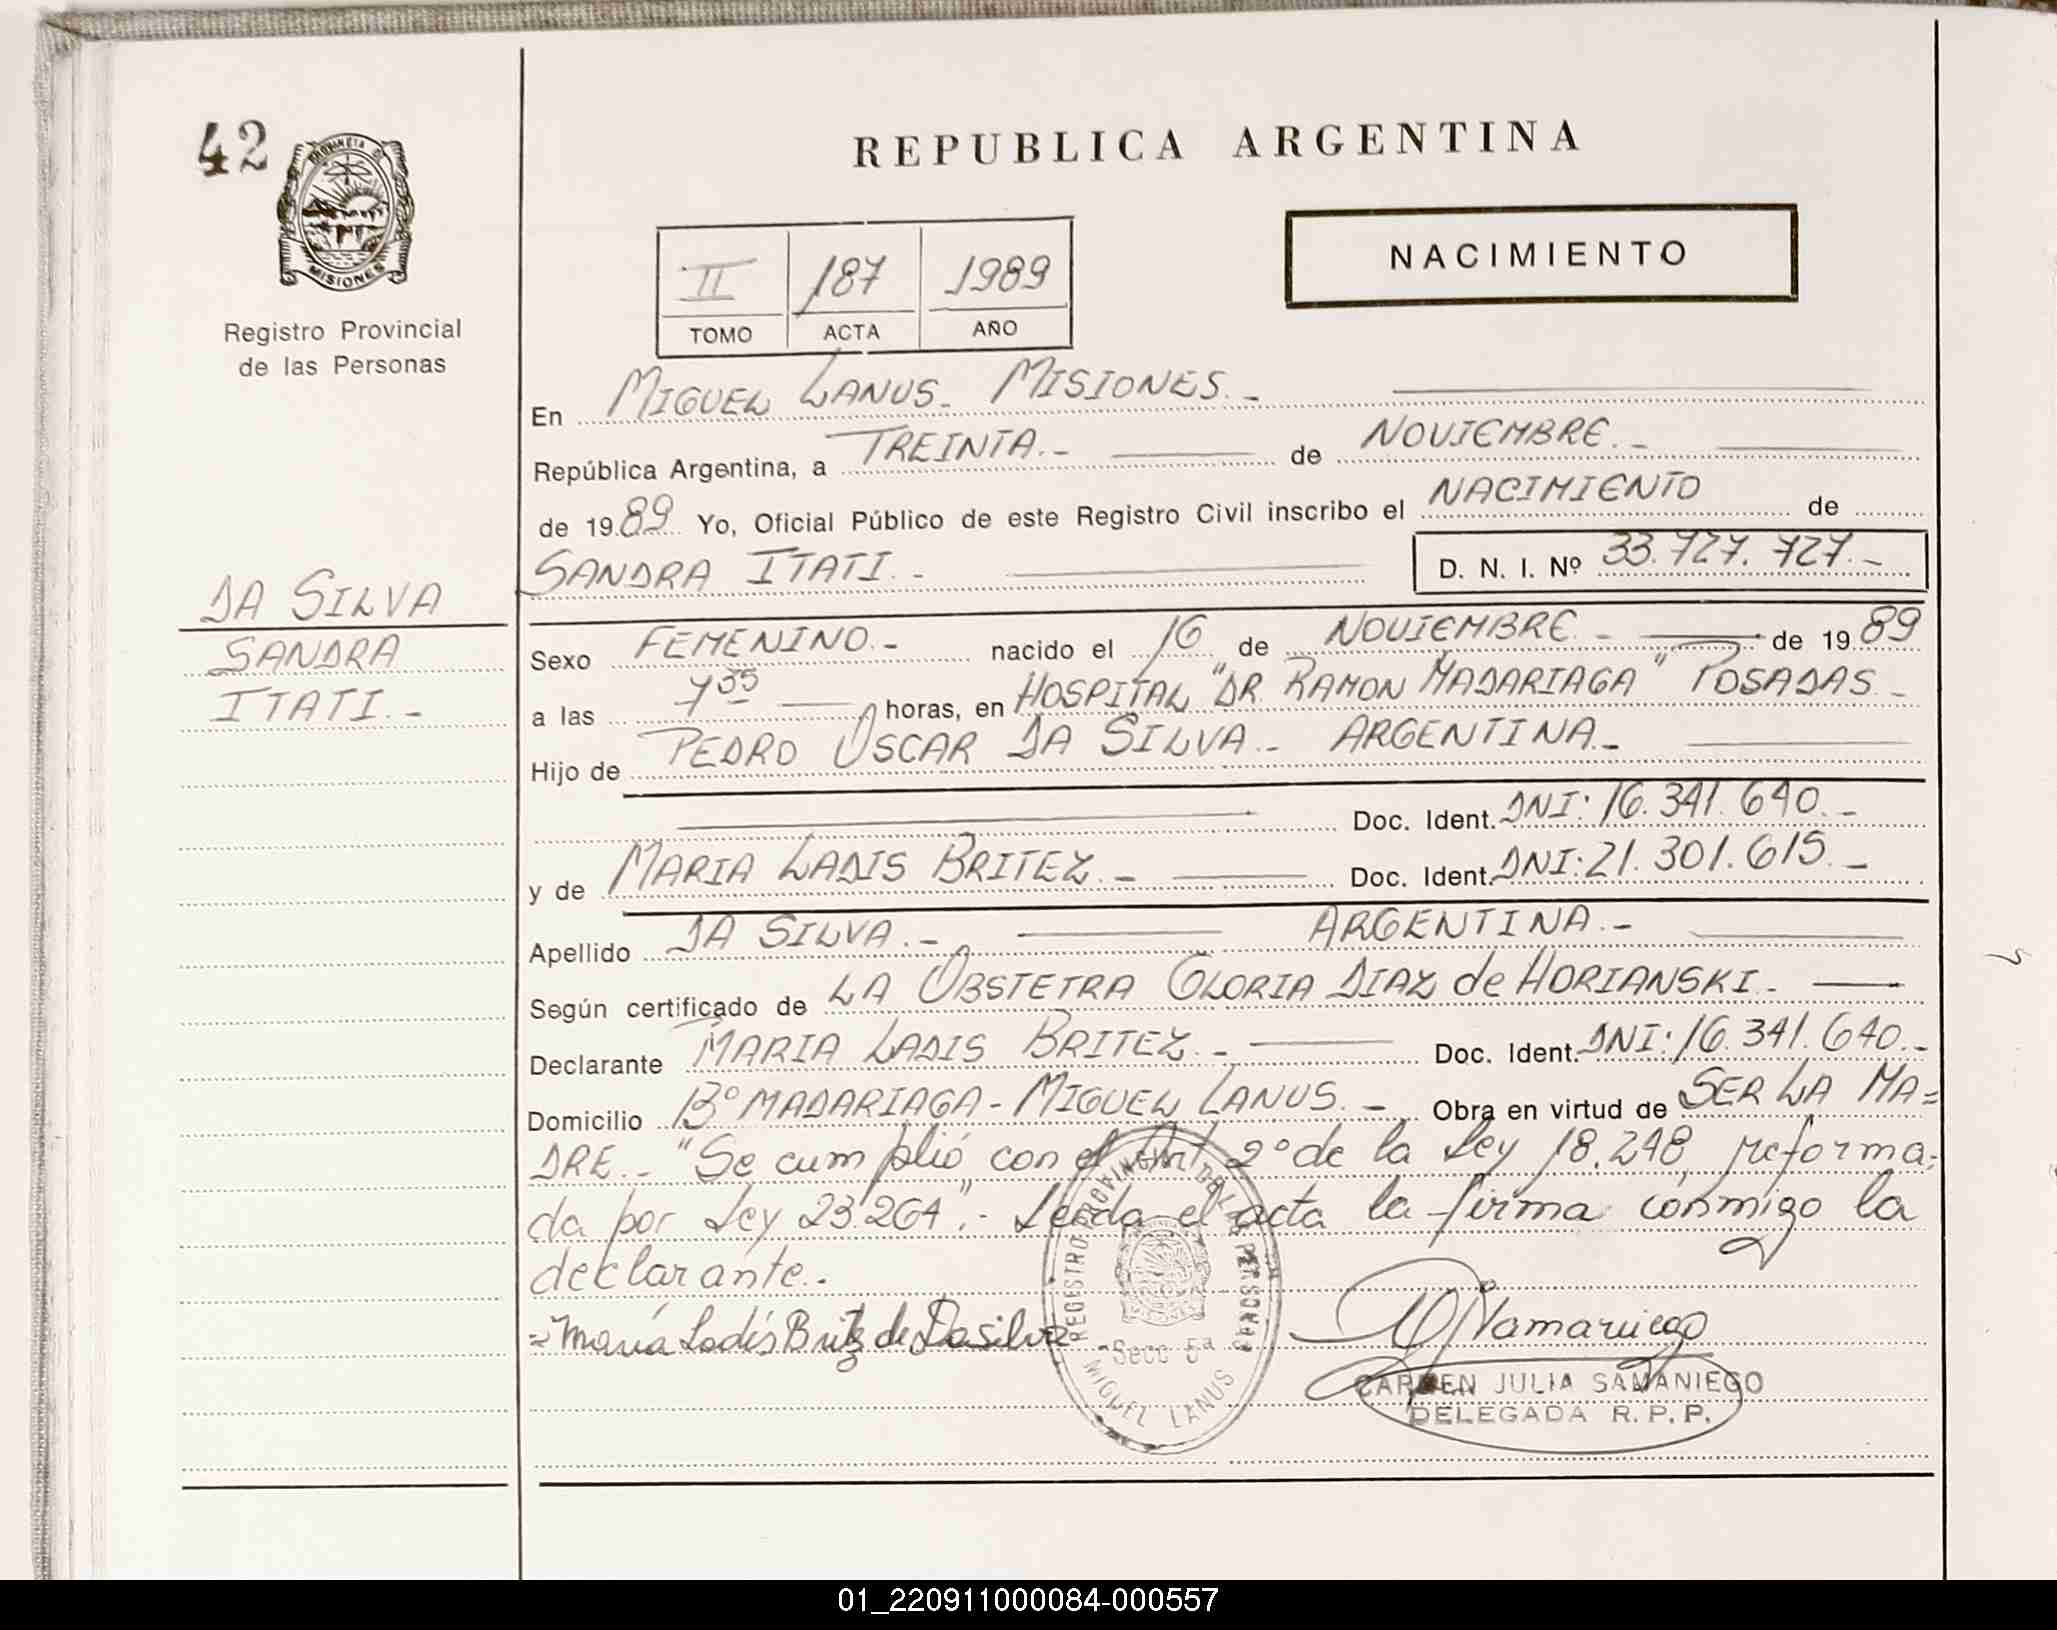 42
PROVINCIA DE
MISIONES
Registro Provincial
de las Personas
REPUBLICA ARGENTINA
II 187 1989
TOMO ACTA AÑO
NACIMIENTO
En MIGUEL LANUS - MISIONES.-
República Argentina, a TREINTA.- de NOVIEMBRE.-
de 1989 Yo, Oficial Público de este Registro Civil inscribo el NACIMIENTO de
SANDRA ITATI.- D. N. I. Nº 33.727.727.-
DA SILVA
SANDRA
ITATI.-
Sexo FEMENINO.- nacido el 16 de NOVIEMBRE.- de 1989
a las 7 35 horas, en HOSPITAL "DR. RAMON MADARIAGA" POSADAS.-
Hijo de PEDRO OSCAR DA SILVA.- ARGENTINA.-
Doc. Ident. DNI: 16.341.640.-
y de MARIA LADIS BRITEZ.- Doc. Ident. DNI: 21.301.615.-
Apellido DA SILVA.- ARGENTINA.-
Según certificado de LA OBSTETRA GLORIA DIAZ de HORIANSKI.-
Declarante MARIA LADIS BRITEZ.- Doc. Ident. DNI: 16.341.640.-
Domicilio Bº MADARIAGA - MIGUEL LANUS.- Obra en virtud de SER LA MA=
DRE.- "Se cumplió con el Art 2º de la Ley 18.248, reforma=
da por Ley 23.264".- Leída el acta la firma conmigo la
declarante.-
=María Ladis Britez de Dasilva
REGISTRO PROVINCIAL DE LAS PERSONAS
Secc 5ª
MIGUEL LANUS
CARMEN JULIA SAMANIEGO
DELEGADA R.P.P.
01_220911000084-000557